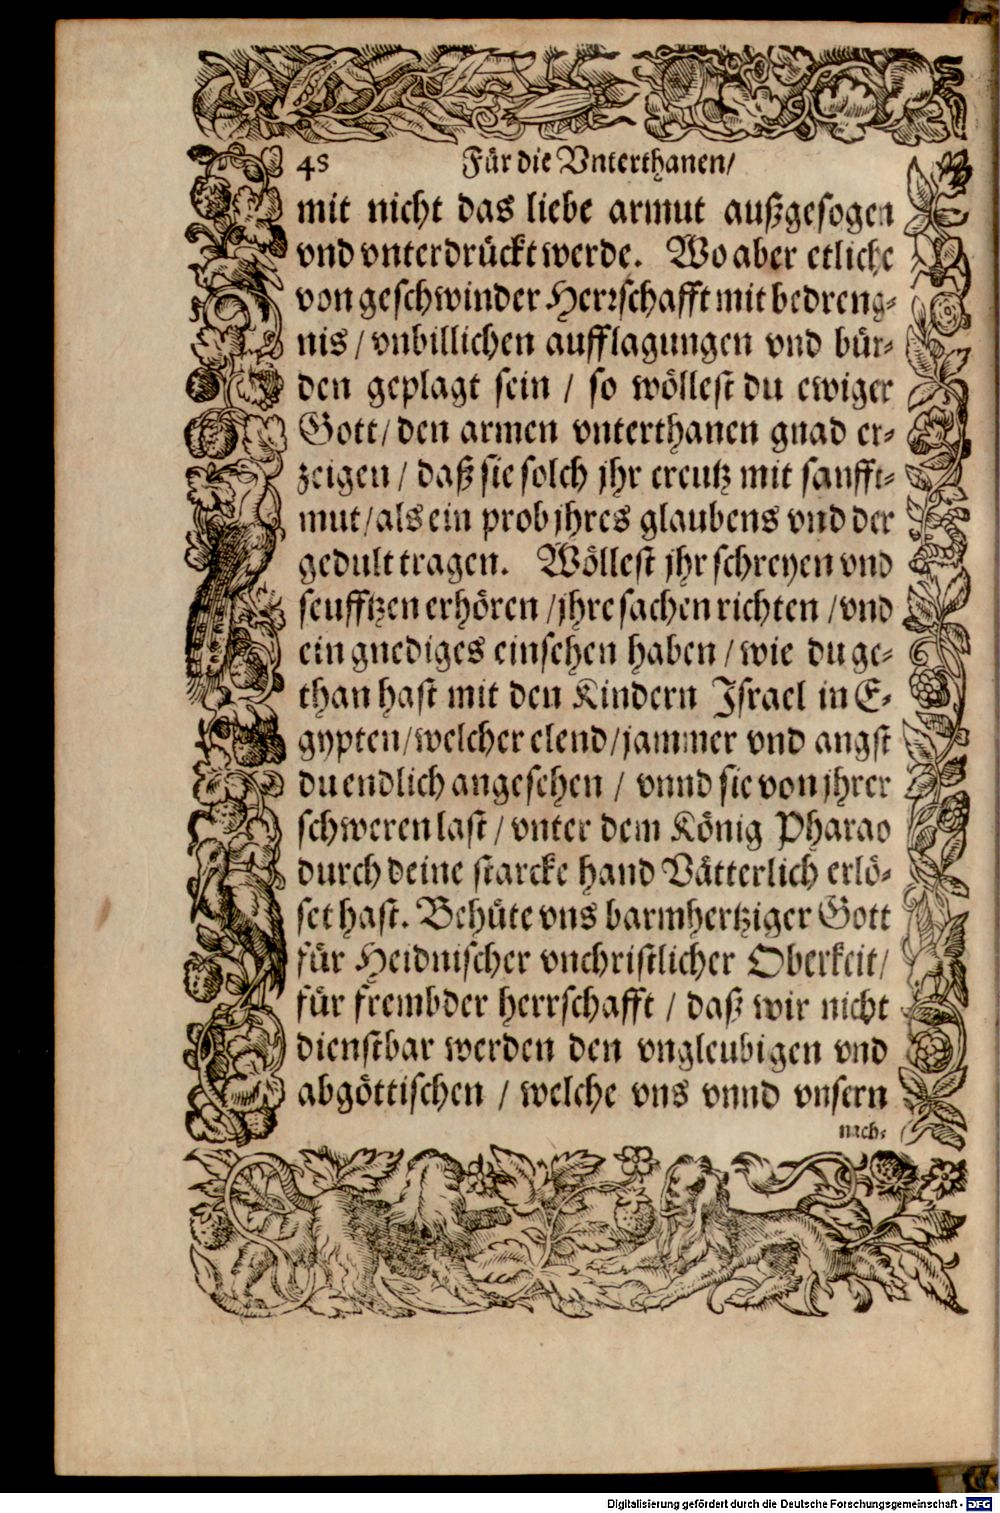 48 Für die Vnterthanen/
mit nicht das liebe armut außgesogen
vnd vnterdrückt werde. Wo aber etliche
von geschwinder Herrschafft mit bedreng-
nis / vnbillichen aufflagungen vnd bür-
den geplagt sein / so wöllest du ewiger
Gott/ den armen vnterthanen gnad er-
zeigen / daß sie solch jhr creutz mit sanfft-
mut/als ein prob jhres glaubens vnd der
gedult tragen. Wöllest jhr schreyen vnd
seufftzen erhören /jhre sachen richten /vnd
ein gnediges einsehen haben / wie du ge-
than hast mit den Kindern Israel in E-
gypten/welcher elend/jammer vnd angst
du endlich angesehen / vnnd sie von jhrer
schweren last / vnter dem König Pharao
durch deine starcke hand Vätterlich erlö-
set hast. Behüte vns barmhertziger Gott
für Heidnischer vnchristlicher Oberkeit/
für frembder herrschafft / daß wir nicht
dienstbar werden den vngleubigen vnd
abgöttischen / welche vns vnnd vnsern
nach-
Digitalisierung gefördert durch die Deutsche Forschungsgemeinschaft - DFG